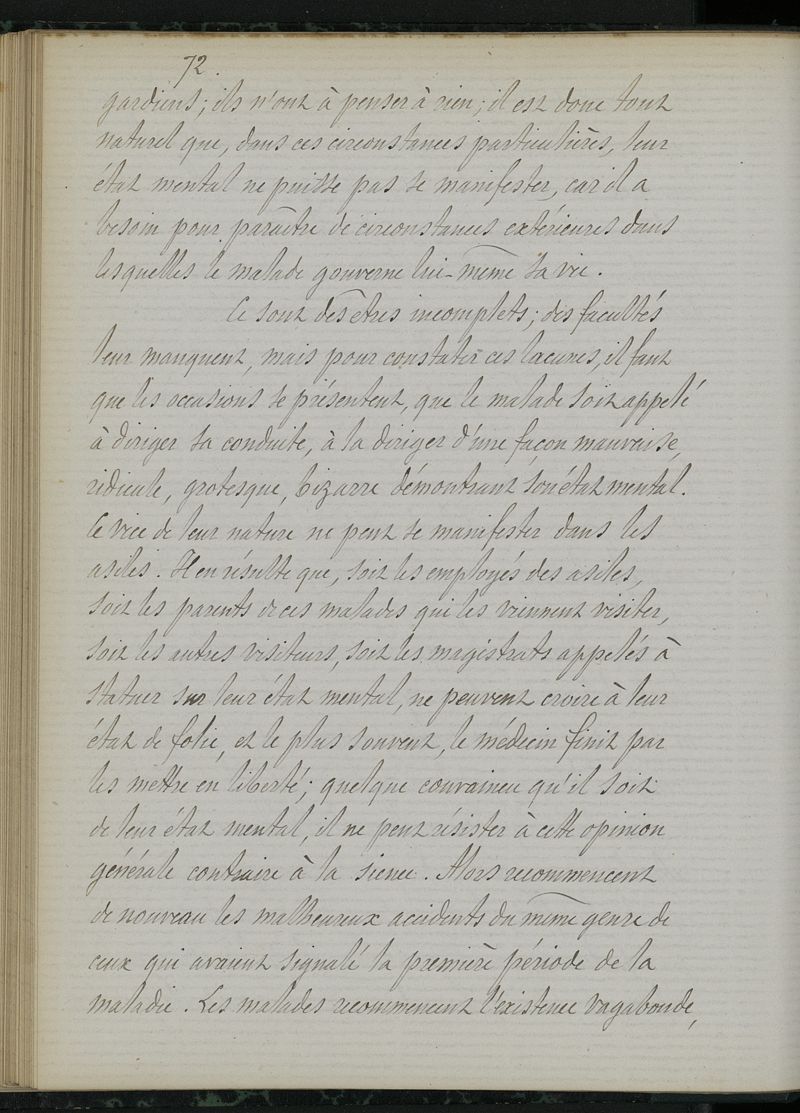 72.
gardiens; ils n'ont à penser à rien; il est donc tout
naturel que, dans ces circonstances particulières, leur
état mental ne puisse pas se manifester, car il a
besoin pour paraître de circonstances extérieures dans
lesquelles le malade gouverne lui-même sa vie.
Ce sont des êtres incomplets; des facultés
leur manquent, mais pour constater ces lacunes, il faut
que les occasions se présentent, que le malade soit appelé
à diriger sa conduite, à la diriger d'une façon mauvaise,
ridicule, grotesque, bizarre démontrant son état mental.
Ce vice de leur nature ne peut se manifester dans les
asiles. Il en résulte que, soit les employés des asiles,
soit les parents de ces malades qui les viennent visiter,
soit les autres visiteurs, soit les magistrats appelés à
statuer sur leur état mental, ne peuvent croire à leur
état de folie, et le plus souvent, le médecin finit par
les mettre en liberté; quelque convaincu qu'il soit
de leur état mental, il ne peut résister à cette opinion
générale contraire à la sienne. Alors recommencent
de nouveau les malheureux accidents du même genre de
ceux qui avaient signalé la première période de la
maladie. Les malades recommencent l'existence vagabonde,